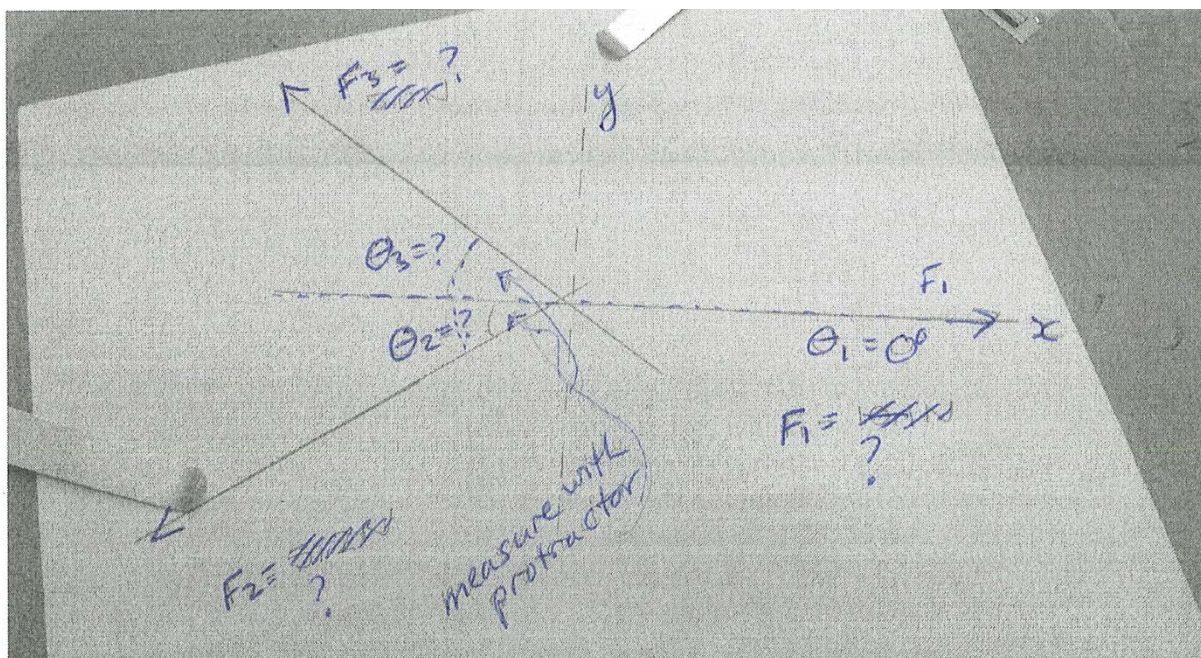 F3 = ?
y
θ3 = ?
F1
θ2 = ?
θ1 = 0°
x
F1 =
?
F2 =
?
measure with
protractor